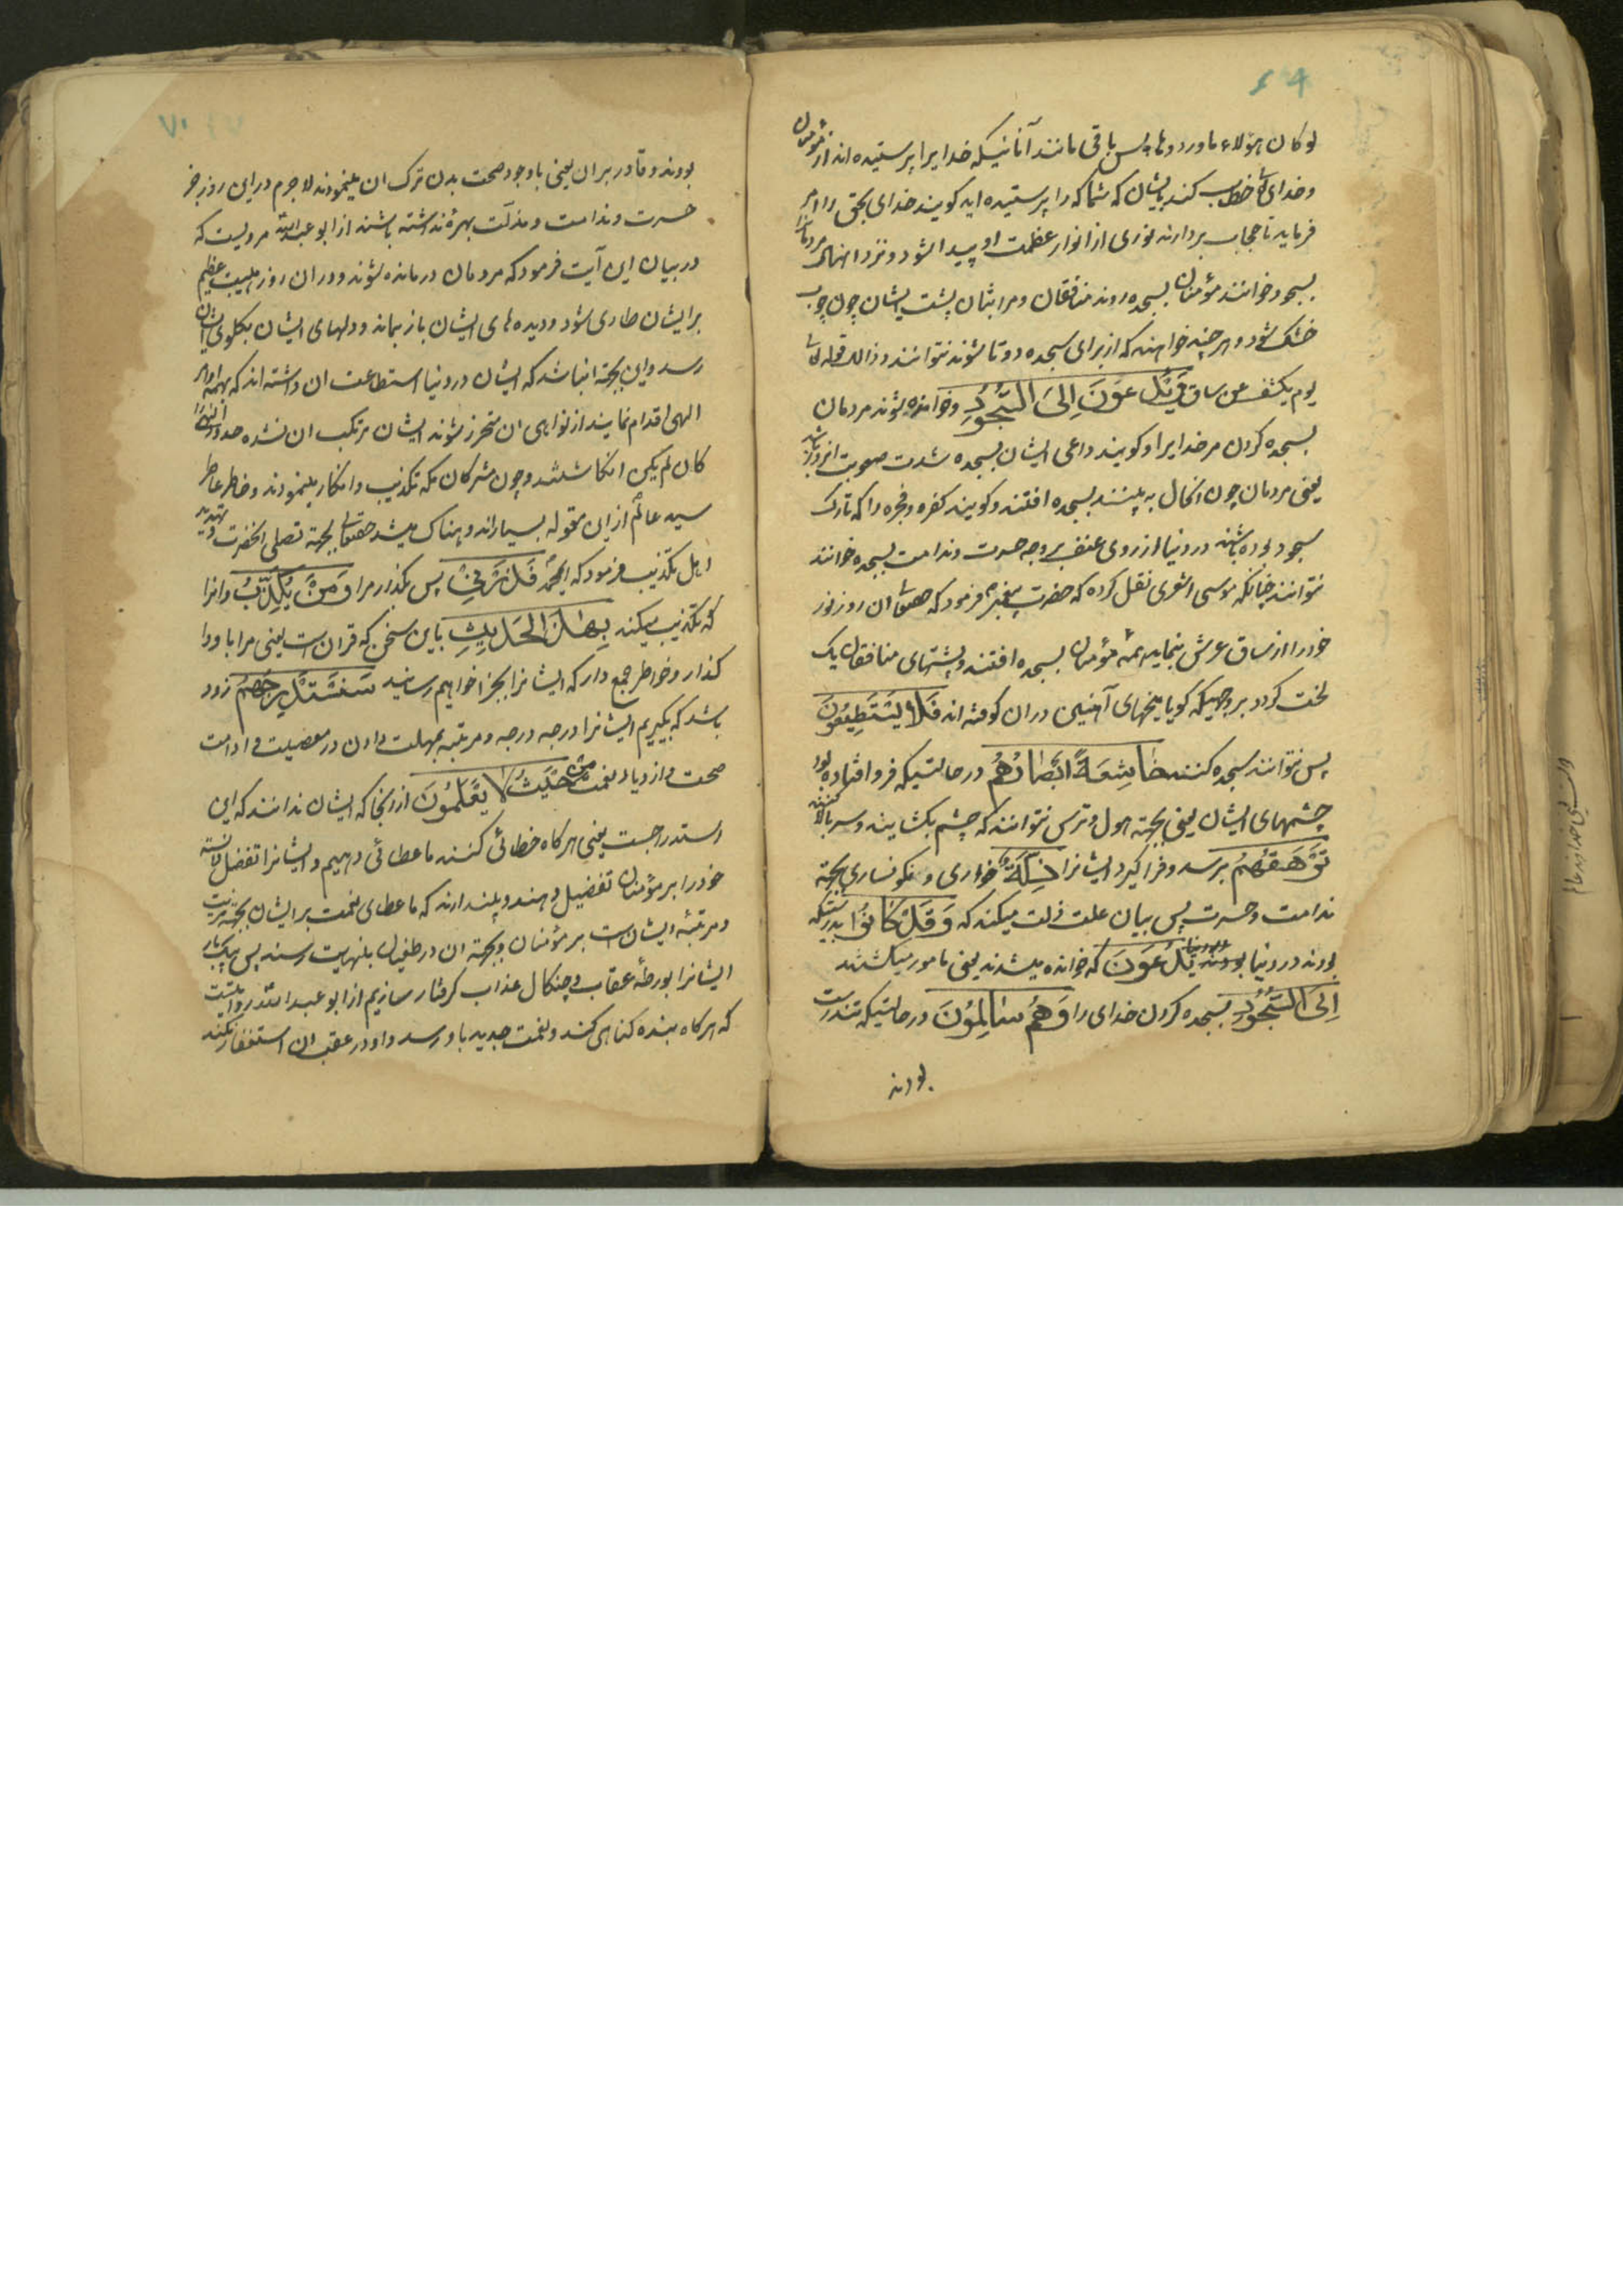 ۶۹
لو کان هؤلاء ما وردوها پس باقی مانند آنانیکه خدایرا پرستیده اند از مؤمنان
و خدای تعالی خطاب کند بایشان که شما کرا پرستیده اید کویند خدای بحق را امر
فرماید تا حجاب بردارند نوری از انوار عظمت او پیدا شود و نزد
بسجود خوانند مؤمنان بسجده روند منافقان و مرائیان پشت ایشان چون چوب
خشک شود و هر چند خواهند که از برای سجده دوتا شوند نتوانند و ذالک قوله تعالی
یوم یکشف عن ساق وَیُدْعَوْنَ اِلَی السُّجُودِ و خوانده شوند مردمان
بسجده کردن مر خدایرا و کویند داعی ایشان بسجده شدت صعوبت انروز باشد
یعنی مردمان چون انحال به بینند بسجده افتند و کویند کفره و فجره را که تارک
سجود بوده باشند در دنیا از روی عنف بر وجه حسرت و ندامت بسجده خوانند
نتوانند چنانکه موسی اشعری نقل کرده که حضرت پیغمبر فرمود که حقتعالی ان روز نور
خود را از ساق عرش بنماید همه مؤمنان بسجده افتند و پشتهای منافقان یک
لخت کردد بر وجهیکه کویا میخهای آهنین دران کوفته اند فَلا یَسْتَطِیعُونَ
پس نتوانند سجده کنند خاشِعَةً اَبْصارُهُمْ در حالتیکه فرو افتاده بود
چشمهای ایشان یعنی بجهة هول و ترس نتوانند که چشم بکشایند و سر بالا کنند
تَرْهَقُهُمْ برسد و فرا کیرد ایشانرا ذِلَّةٌ خواری و نکونساری بجهة
ندامت و حسرت پس بیان علت ذلت میکند که وَقَدْ کانُوا بدرستیکه
بودند در دنیا بودند یُدْعَوْنَ که خوانده میشدند یعنی مامور میکشتند
اِلَی السُّجُودِ بسجده کردن خدای را وَهُمْ سالِمُونَ در حالتیکه تندرست
بودند
۷۰
بودند و قادر بر ان یعنی با وجود صحت بدن ترک ان مینمودند لاجرم در این روز جز
حسرت و ندامت و مذلت بهره نداشته باشند از ابو عبدالله مرویست که
در بیان این آیت فرمود که مردمان درمانده شوند و در ان روز هیبت عظیم
بر ایشان طاری شود و دیده های ایشان باز بماند و دلهای ایشان بکلوی ایشان
رسد و این بجهة انباشد که ایشان در دنیا استطاعت ان داشته اند که بهمه اوامر
الهی اقدام نمایند از نواهی ان متحرز شوند ایشان مرتکب ان نشده حدود الهی را
کان لم یکن انکاشتند و چون مشرکان مکه تکذیب و انکار مینمودند و خاطر عاطر
سید عالم از این مقوله بسیار اندوهناک میشد حقتعالی بجهة تسلی انحضرت و تهدید
اهل تکذیب فرمود که ایمحمد فَذَرْنِی پس بکذار مرا وَمَنْ یُکَذِّبُ و انرا
که تکذیب میکند بِهذَا الْحَدِیثِ باین سخن که قران است یعنی مرا با و وا
کذار و خواطر جمع دار که ایشانرا بجزا خواهیم رسانید سَنَسْتَدْرِجُهُمْ زود
باشد که بکیریم ایشانرا درجه درجه و مرتبه بمهلت دادن در معصیت و ادامت
صحت و ازدیاد نعمت مِنْ حَیْثُ لا یَعْلَمُونَ از انجا که ایشان ندانند که این
استدراجست یعنی هرکاه خطائی کنند ما عطائی دهیم و ایشانرا تفضل دانسته
خود را بر مؤمنان تفضیل دهند و پندارند که ما عطای نعمت بر ایشان بجهة مزیت
و مرتبهٔ ایشان است بر مؤمنان و بجهة ان در طغیان بنهایت رسند پس بیکبار
ایشانرا بورطهٔ عقاب و چنکال عذاب کرفتار سازیم از ابو عبدالله روایتست
که هرکاه بنده کناهی کند و نعمت جدید باو رسد و او در عقب ان استغفار نکند